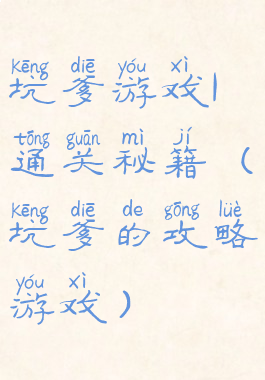 kēng diē yóu xì
坑爹游戏|
tōng guān mì jí
通关秘籍（
kēng diē de gōng lüè
坑爹的攻略
yóu xì
游戏）